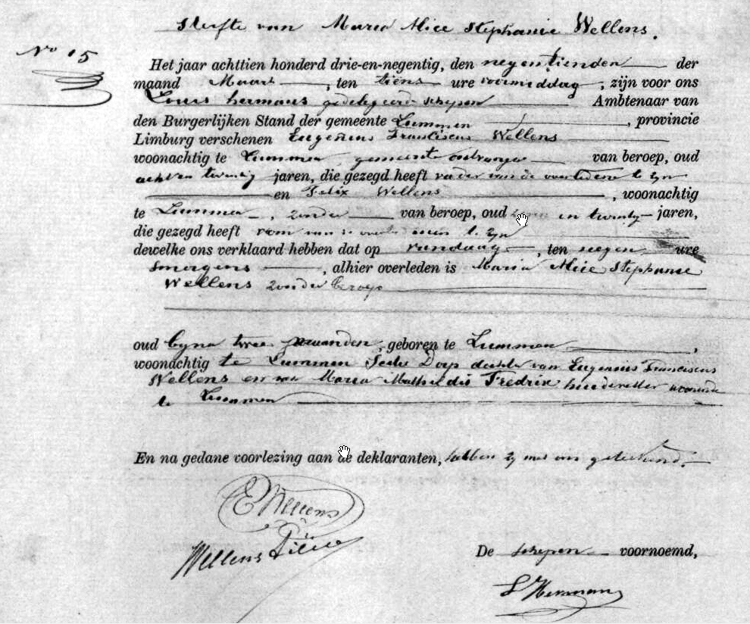 Sterfte van Maria Alice Stephanie Wellens.
No 15
Het jaar achttien honderd drie-en-negentig, den negentienden der
maand Maart, ten tiens ure voormiddag, zijn voor ons
Louis hermans gedelegeerd schepen Ambtenaar van
den Burgerlijken Stand der gemeente Lummen, provincie
Limburg verschenen Eugenius Franciscus Wellens
woonachtig te Lummen, gemeente ontvanger van beroep, oud
acht en twintig jaren, die gezegd heeft vader van de overledene te zyn
en Felix Wellens, woonachtig
te Lummen, zonder van beroep, oud en twintig jaren,
die gezegd heeft oom van de overledenen te zyn
dewelke ons verklaard hebben dat op vandaag, ten negen ure
smorgens, alhier overleden is Maria Alice Stephanie
Wellens zonder beroep
oud byna twee maanden, geboren te Lummen,
woonachtig te Lummen Sectie Dorp dochter van Eugenius Franciscus
Wellens en van Maria Mathildis Fredrix
te Lummen
En na gedane voorlezing aan de deklaranten, hebben zy met ons geteekend.
EWellens
Wellens Félix
De schepen voornoemd,
L Hermans